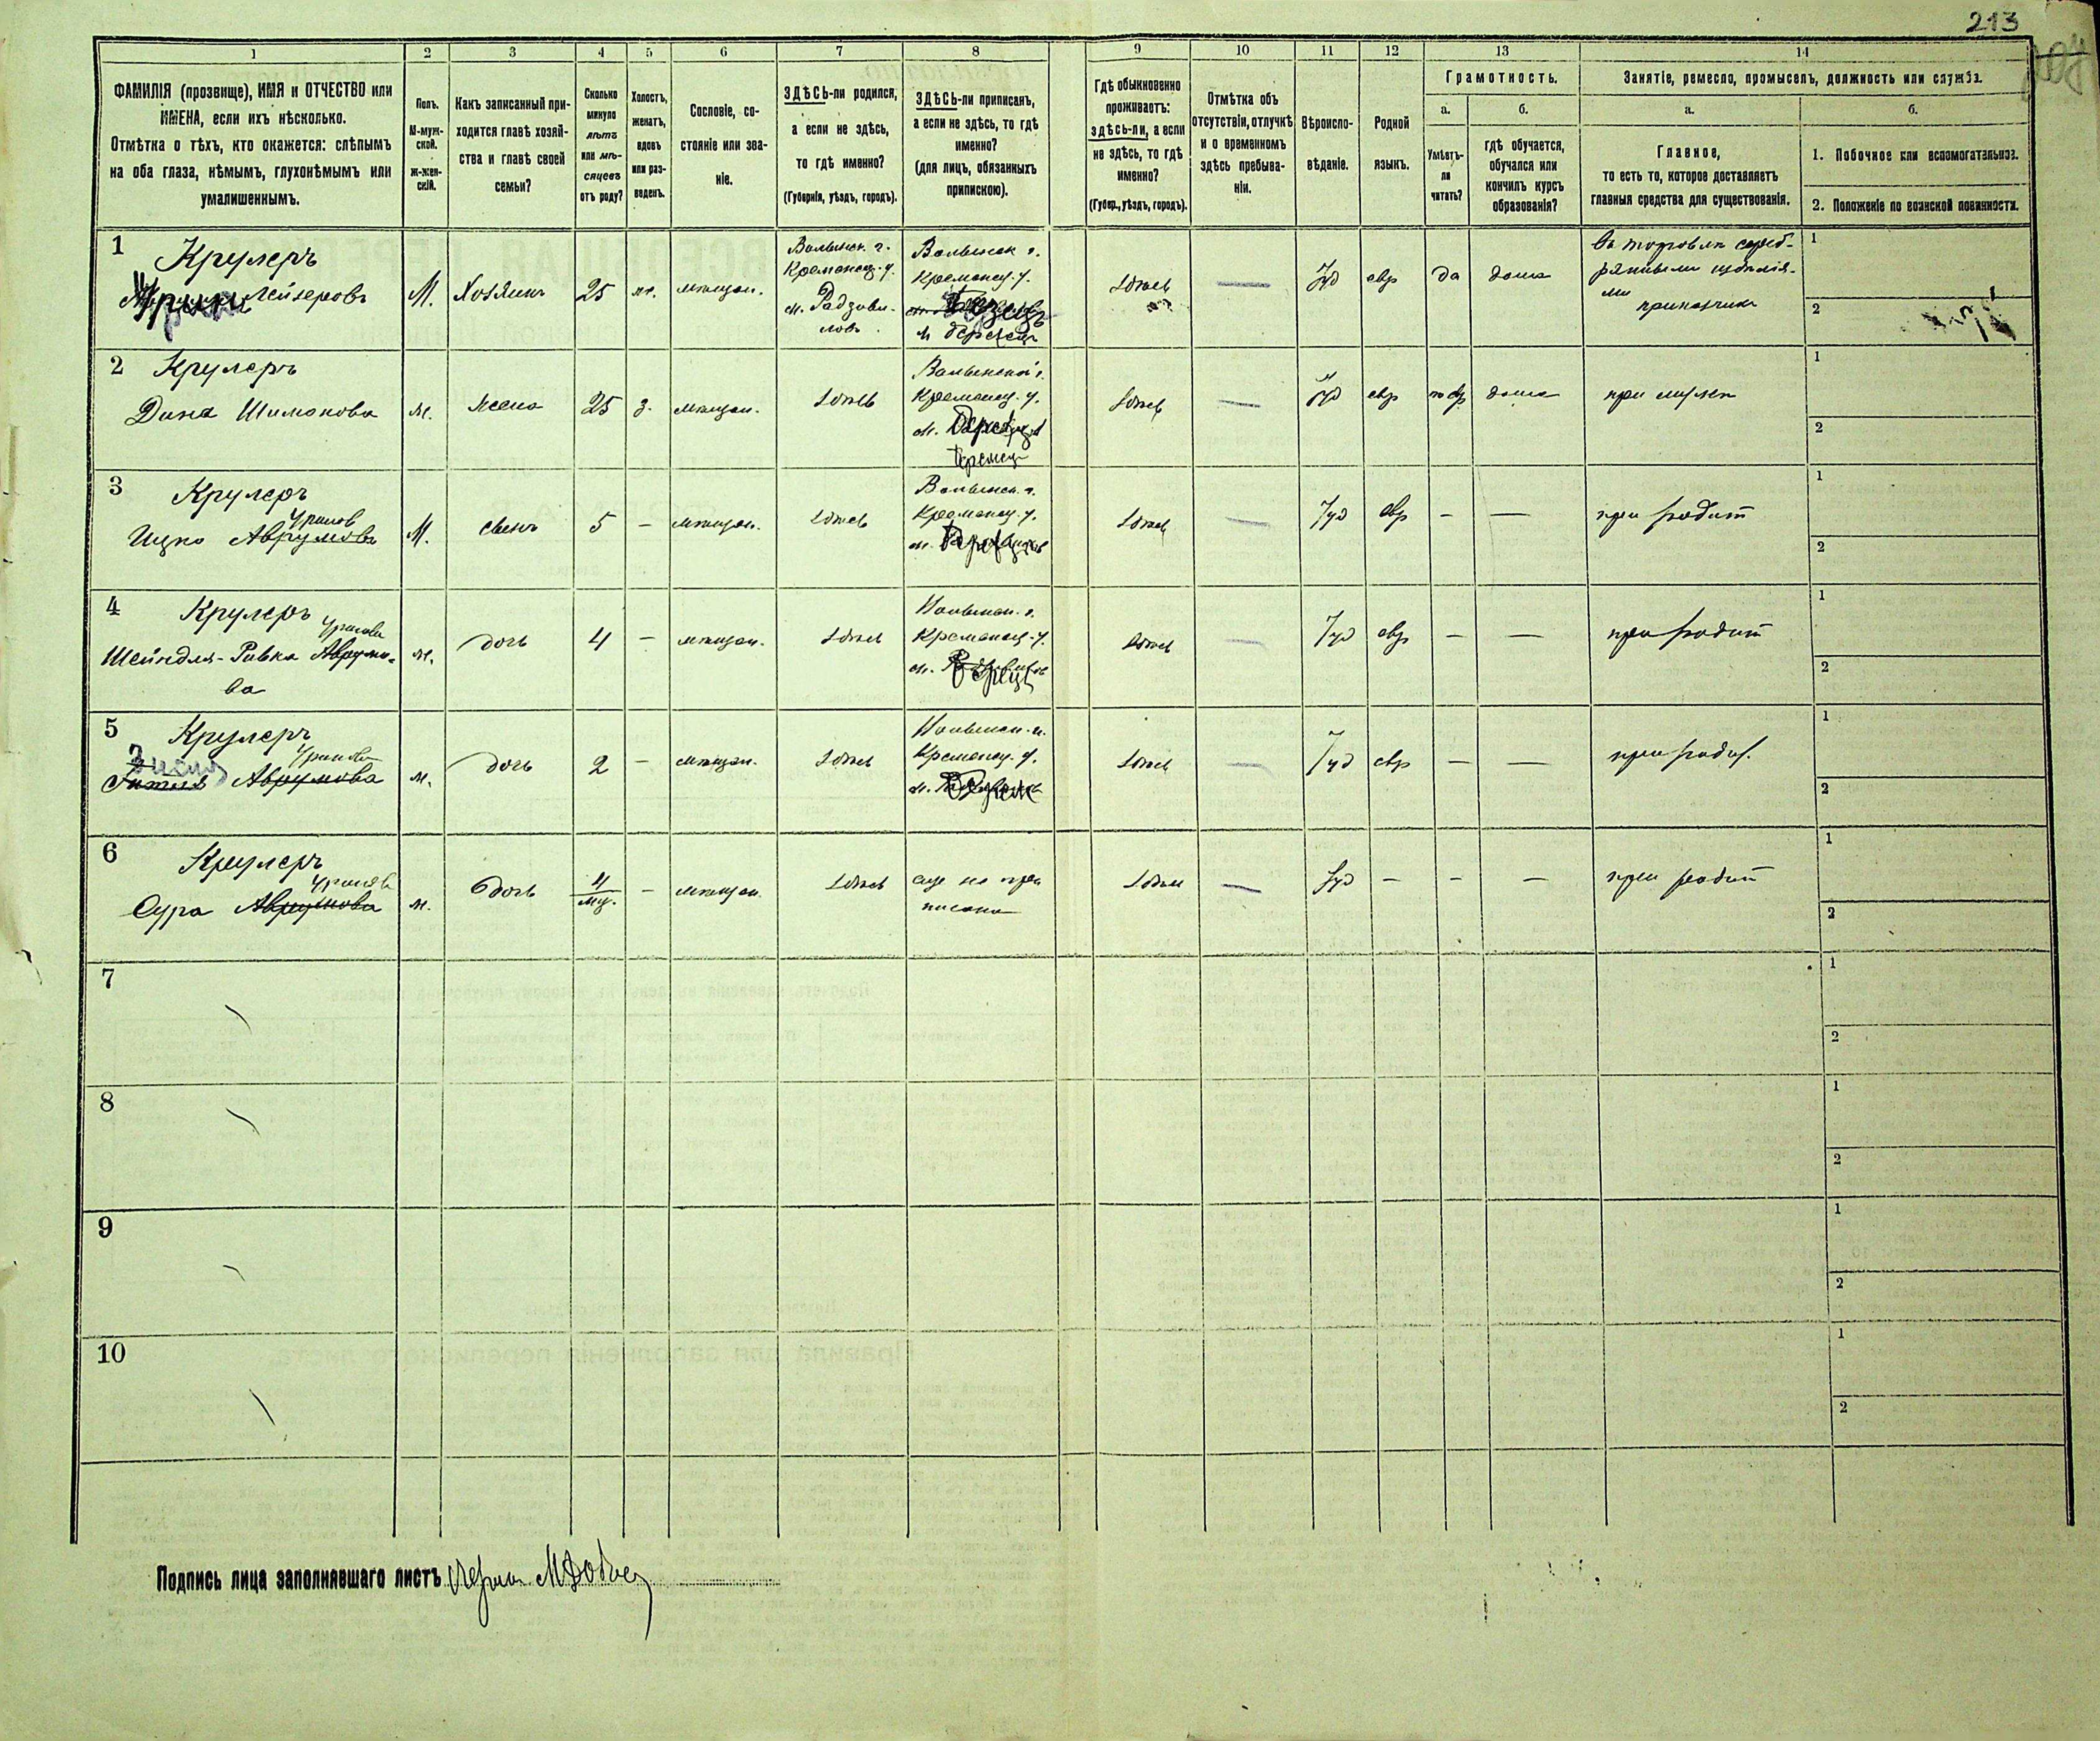 213
1
2
3
4
5
6
7
8
9
10
11
12
13
14
ФАМИЛІЯ (прозвище), ИМЯ и ОТЧЕСТВО или
ИМЕНА, если ихъ нѣсколько.
Отмѣтка о тѣхъ, кто окажется: слѣпымъ
на оба глаза, нѣмымъ, глухонѣмымъ или
умалишеннымъ.
Полъ.
М-муж-
ской.
ж-жен-
скій.
Какъ записанный при-
ходится главѣ хозяй-
ства и главѣ своей
семьи?
Сколько
минуло
лѣтъ
или мѣ-
сяцевъ
отъ роду?
Холостъ,
женатъ,
вдовъ
или раз-
веденъ.
Сословіе, со-
стояніе или зва-
ніе.
ЗДѢСЬ-ли родился,
а если не здѣсь,
то гдѣ именно?
(Губернія, уѣздъ, городъ).
ЗДѢСЬ-ли приписанъ,
а если не здѣсь, то гдѣ
именно?
(для лицъ, обязанныхъ
припискою).
Гдѣ обыкновенно
проживаетъ:
здѣсь-ли, а если
не здѣсь, то гдѣ
именно?
(Губер., уѣздъ, городъ).
Отмѣтка объ
отсутствіи, отлучкѣ
и о временномъ
здѣсь пребыва-
ніи.
Вѣроиспо-
вѣданіе.
Родной
языкъ.
Грамотность.
а.
б.
Умѣетъ-
ли
читать?
гдѣ обучается,
обучался или
кончилъ курсъ
образованія?
Занятіе, ремесло, промыселъ, должность или служба.
а.
б.
Главное,
то есть то, которое доставляетъ
главныя средства для существованія.
1. Побочное или вспомогательное.
2. Положеніе по воинской повинности.
1 Крулеръ
Лейзеровъ
М. Хозяинъ 25 ж. мѣщан.
Волынск. г.
Кременец. у.
м. Радзиви-
ловъ
Волынск г.
Кременец. у.
м Березецъ
здѣсь — Іуд евр да дома
въ торговлѣ сереб-
рянными издѣлія-
ми
приказчикъ
1
2
2 Крулеръ
Дина Шимонова
ж. жена 25 з. мѣщан. здѣсь
Волынской г.
Кременец. у.
здѣсь — Іуд евр дома при мужѣ
1
2
3 Крулеръ
Ицко Аврумовъ
М. сынъ 5 — мѣщан. здѣсь
Волынск. г.
Кременец. у.
здѣсь — Іуд евр — — при родит
1
2
4 Крулеръ
Шейндля-Ривка Аврумо-
ва
ж. дочь 4 — мѣщан. здѣсь
Волынск. г.
Кременец. у.
здѣсь — Іуд евр — — при родит
1
2
5 Крулеръ
Аврумова
ж. дочь 2 — мѣщан. здѣсь
Волынск. г.
Кременец. у.
здѣсь — Іуд евр — — при родит.
1
2
6 Крулеръ
Сура Аврумова
ж. дочь 4 мц. — мѣщан. здѣсь
еще не при
писана
здѣсь — Іуд — — — при родит
1
2
7
1
2
8
1
2
9
1
2
10
1
2
Подпись лица заполнявшаго листъ